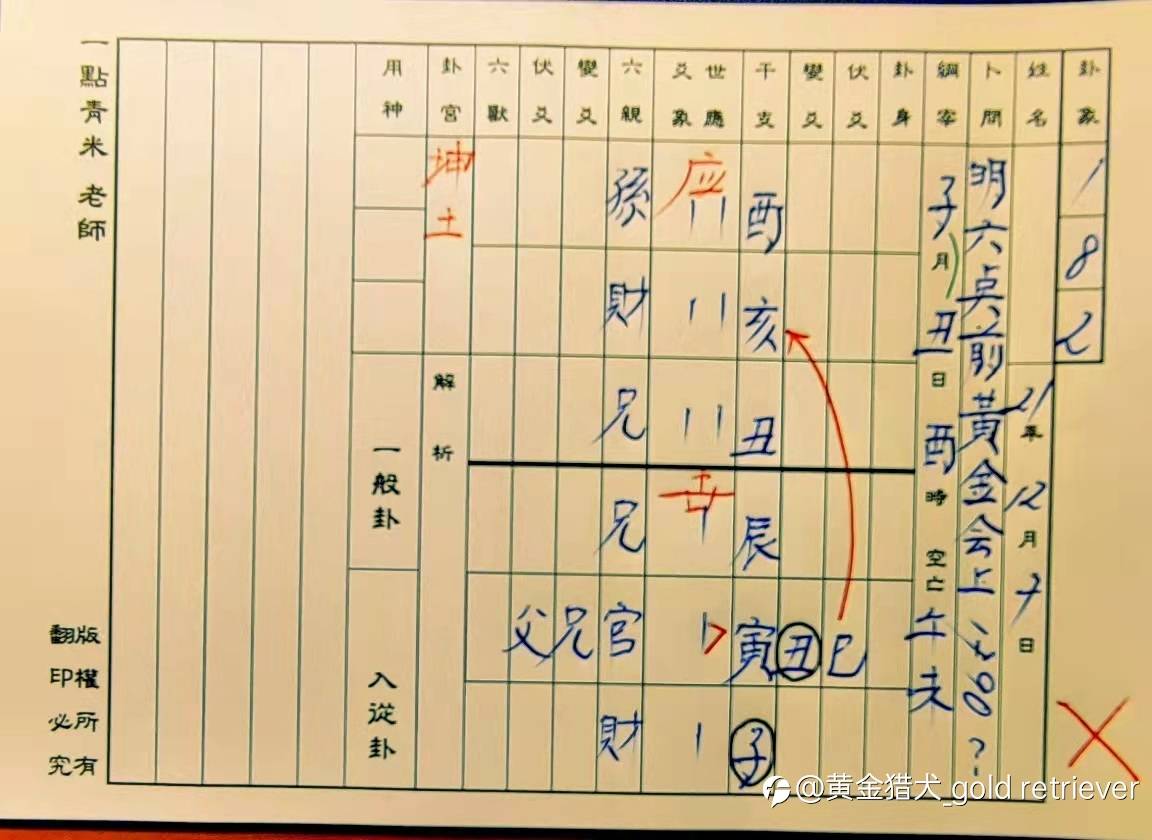 卦象
1
8
2
姓名
21年12月7日
卜問
明六点前黃金会上
?
綱宰
子月丑日酉時空亡午未
卦身
伏爻
變爻
巳
丑
干支
酉
亥
丑
辰
寅
子
世應
爻象
应
世
六親
孫
財
兄
兄
官
財
變爻
兄
伏爻
父
六獸
卦宮
坤土
解析
用神
一般卦
入從卦
一點青米老師
版權所有
翻印必究
@黄金猎犬_gold retriever